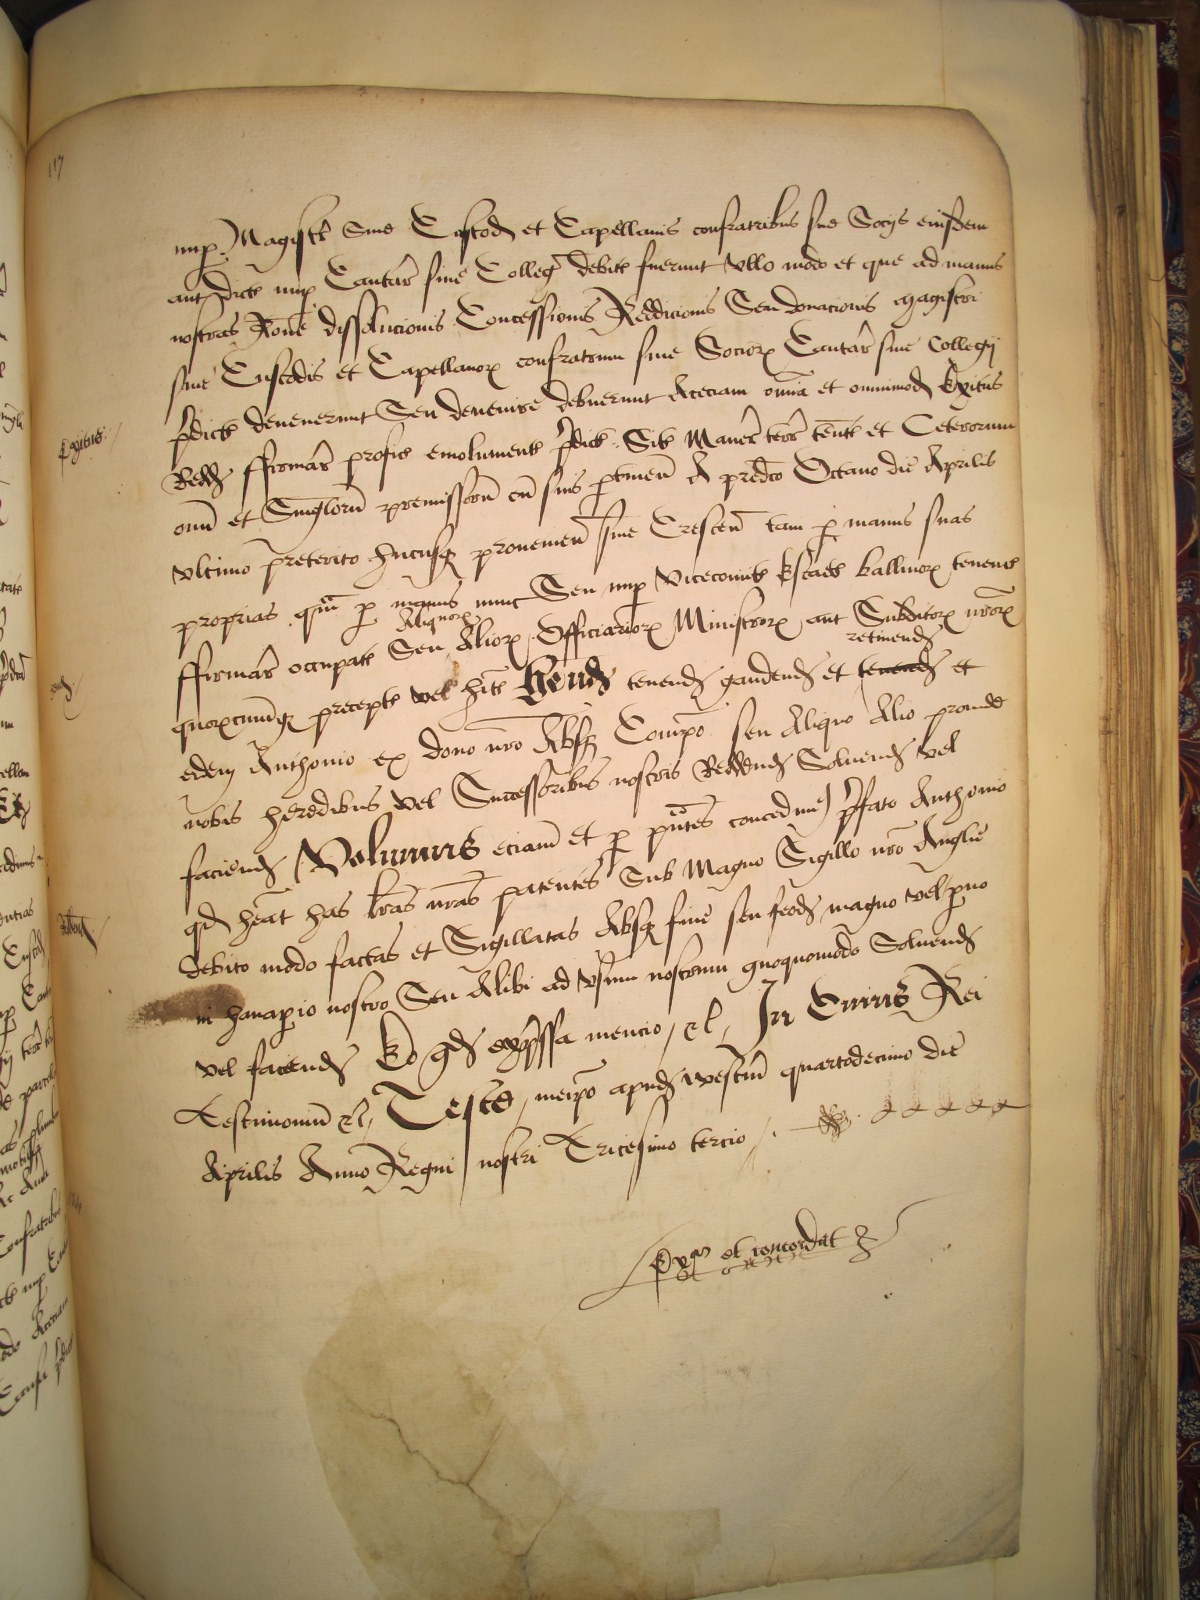 117
nup Magistr Sive Custod et Capellanis confratribus sive Socijs eiusdem
aut dict nup Cantar sive Colleg debit fuerunt Ullo modo et que ad manus
nostras Rone dissolucionis Concessionis Reddicionis Seu donacionis magistri
sive Custodis et Capellanor confratrum sive Socior Cantar sive Collegij
pdict devenerunt Seu devenire debuerunt Aceciam omia et omnimod Exitus
Exitus
Redd ffirmar profic emolument pdict Sit Maner terr tent et Ceterorum
oim et Singlorum premissorum cu suis ptinen A predco Octavo die Aprilis
ultimo preterito hucusq provenien sive Crescen tam p manus suas
proprias qm p manus nunc Seu nup Vicecomit Escaet ballivor tenenc
ffirmar occupat Seu Alior Officiarior Ministror aut Subditor nror
Aliquor
quorcumq precept vel hit Hend tenend gaudend et tenend et
retinend
edem Anthonio ex dono nro Absq Compo seu Aliquo Alio proinde
nobis heredibus vel Successoribus nostris Reddend Solvend vel
faciend Volumus eciam et p pntes concedim pfato Anthonio
qd heat has lras nras patentes Sub Magno Sigillo nro Anglie
debito modo factas et Sigillatas Absq fine seu feodo magno vel pvo
in hanapio nostro Seu Alibi ad usum nostrum quoquomodo Solvend
vel faciend Eo qd expssa mencio &c In Cuius Rei
Testimonium &c Teste meipo apud Westm quartodecimo die
Aprilis Anno Regni nostri Tricesimo tercio
Ex et concordat